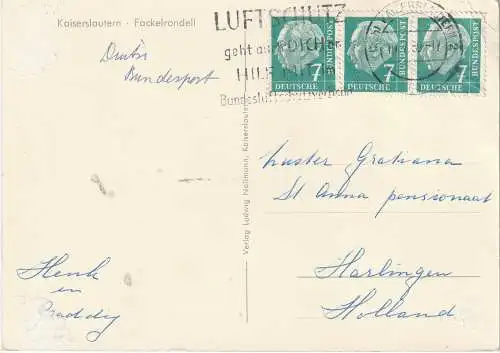 Kaiserslautern - Fackelrondell
LUFTSCHUTZ
geht
HILF MIT
7 DEUTSCHE BUNDESPOST
7 DEUTSCHE BUNDESPOST
7 DEUTSCHE BUNDESPOST
Bundespost
Verlag Ludwig Nollmann, Kaiserslautern
Zuster Gratiana
St Anna pensionaat
Harlingen
Holland
Henk
en